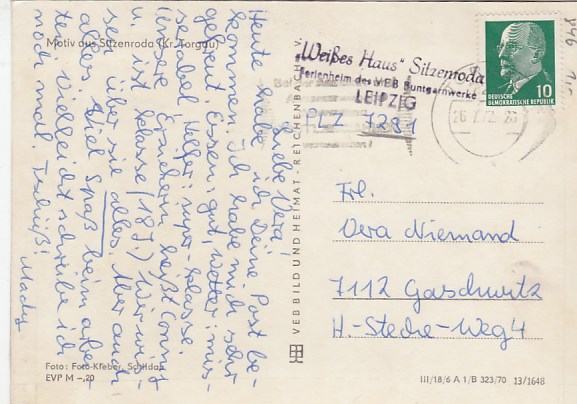 Motiv aus Sitzenroda (Kr. Torgau)
Liebe Vera,
Heute habe ich Deine Post be-
kommen. Ich habe mich sehr
gefreut. Essen: gut, Wetter: mis-
serabel, Helfer: super-klasse.
Unsere Erzieherin heißt Conny
u. ist klasse (18 J) Wir wis-
sen über sie alles. Aber auch
alles. Viel Spaß beim arbei-
ten. Vielleicht schreibe ich
noch mal. Tschüß!
Mady
Foto: Foto-Kleber, Schildau
EVP M -,20
VEB BILD UND HEIMAT · REICHENBACH i. V.
„Weißes Haus" Sitzenroda
Ferienheim des VEB Buntgarnwerke
LEIPZIG
PLZ 7291
DEUTSCHE
DEMOKRATISCHE REPUBLIK
10
Frl.
Vera Niemand
7112 Gaschwitz
H.-Steche-Weg 4
III/18/6 A 1/B 323/70 13/1648